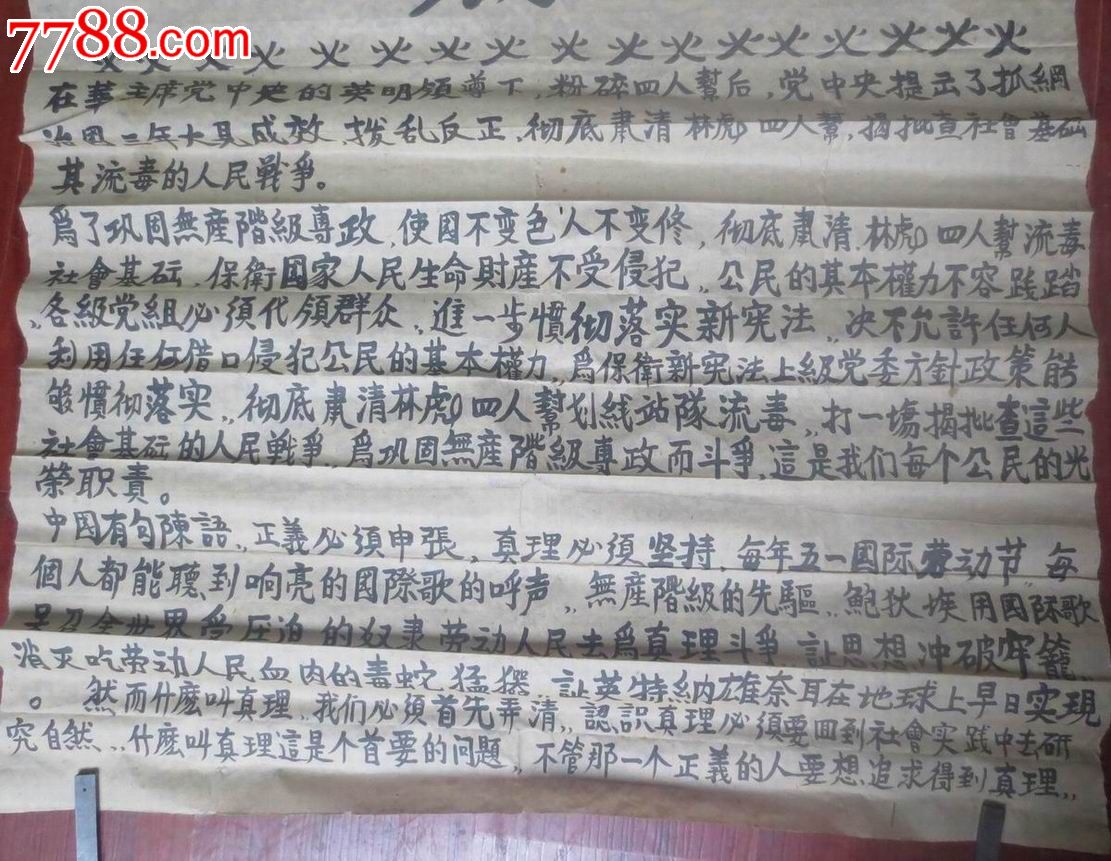 7788.com
火火火火火火火火火火火火火火火火火
在華主席党中央的英明領导下，粉碎四人幫后，党中央提出了抓綱
治囯三年大見成效，拨乱反正，彻底肅清林彪四人幫，揭批查社會基础
其流毒的人民戰爭。
爲了巩固無産階級專政，使國不变色人不变修，彻底肅清林彪四人幫流毒
社會基础，保衛國家人民生命財産不受侵犯，公民的其本權力不容践踏
，各級党組必須代領群众，進一步慣彻落实新宪法，决不允許任何人
利用任何借口侵犯公民的基本權力，爲保衛新宪法上級党委方針政策能
够慣彻落实，彻底肅清林彪四人幫划线站隊流毒，打一塲揭批查這些
社會基础的人民戰爭，爲巩固無産階級專政而斗爭，這是我们每个公民的光
榮职責。
中国有句陳語，正義必須申張，真理必須坚持，每年五一國际劳动节，每
個人都能聽到响亮的國際歌的呼声，無産階級的先驅，鲍狄埃用國际歌
号召全世界受压迫的奴隶劳动人民去爲真理斗爭，让思想冲破牢籠，
消灭吃劳动人民血肉的毒蛇猛獸，让英特納雄奈耳在地球上早日实现
。然而什麽叫真理，我们必須首先弄清，認识真理必須要囬到社會实践中去研
究自然，什麽叫真理這是个首要的问題，不管那一个正義的人要想追求得到真理，